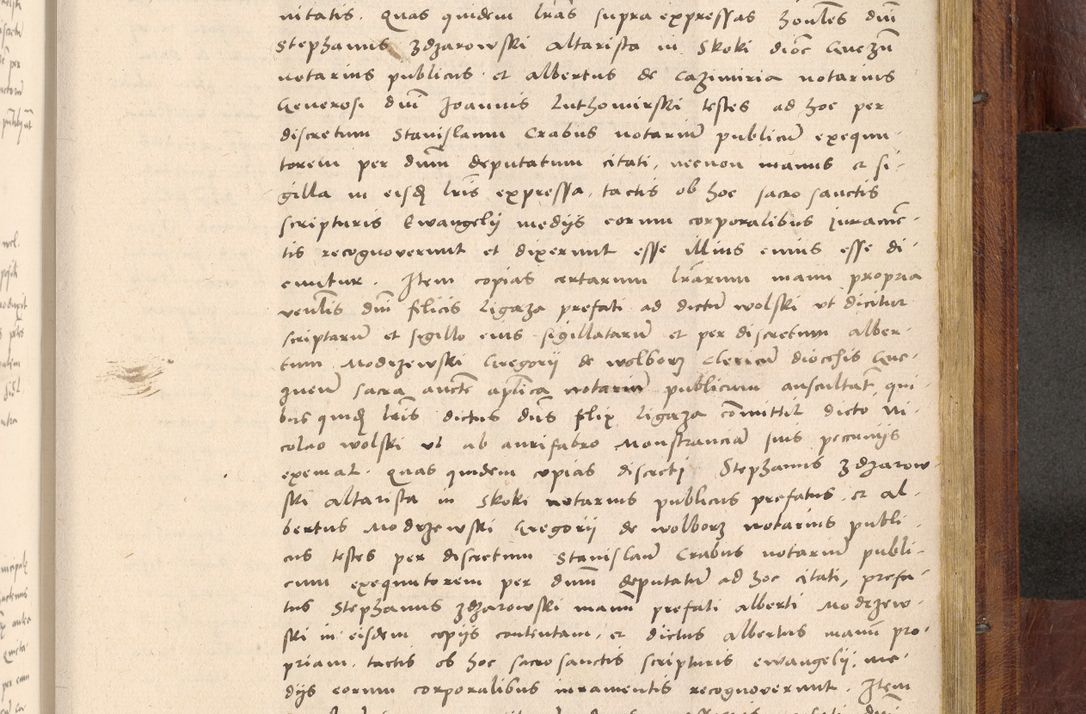 nitatis. Quas quidem lras supra expressas honles dni
Stephanus Zdzarowski altarista in Skoki dioc Gnezn
notarius publicus et albertus de Cazimiria notarius
Generosi dni Joannis Luthomirski testes ad hoc per
discretum Stanislaum Crabus notariu publicu exequu-
torem per dnm deputatum citati, necnon manus et si-
gilla in eisd lris expressa, tactis ob hoc sacro sanctis
scripturis Ewangelij medijs eorum corporalibus iuramē-
tis recognoverunt et dixerunt esse illius cuius esse di-
cuntur. Item copias certarum lrarum manu propria
venlis dni felicis Ligaza prefati ad dictu wolski ut dicitur
scriptaru et sgillo eius sigillataru et per discretum alber-
tum Modrzewski Gregorij de wolborz clericu diocesis Gne-
znen sacra aucte aplica notariu publicum auscultat qui-
bus quid lris dictus dns felix Ligaza comittit dicto Ni-
colao wolski ut ab aurifabro Monstrancia suis pecunijs
exemat. Quas quidem copias discreti Stephanus Zdzarow-
ski altarista in Skoki notarius publicus prefatus et al-
bertus Modrzewski Gregorij de wolborz notarius publi-
cus testes per discretum Stanislau Crabus notariu publi-
cum exequutorem per dnum deputatu ad hoc citati, prefa-
tus Stephanus Zdzarowski manu prefati alberti Modrzew-
ski in eisdem copijs contentam, et dictus albertus manu pro-
priam, tactis ob hoc sacrosanctis scripturis ewangelij, me-
dijs eorum corporalibus iuramentis recognoverunt. Item